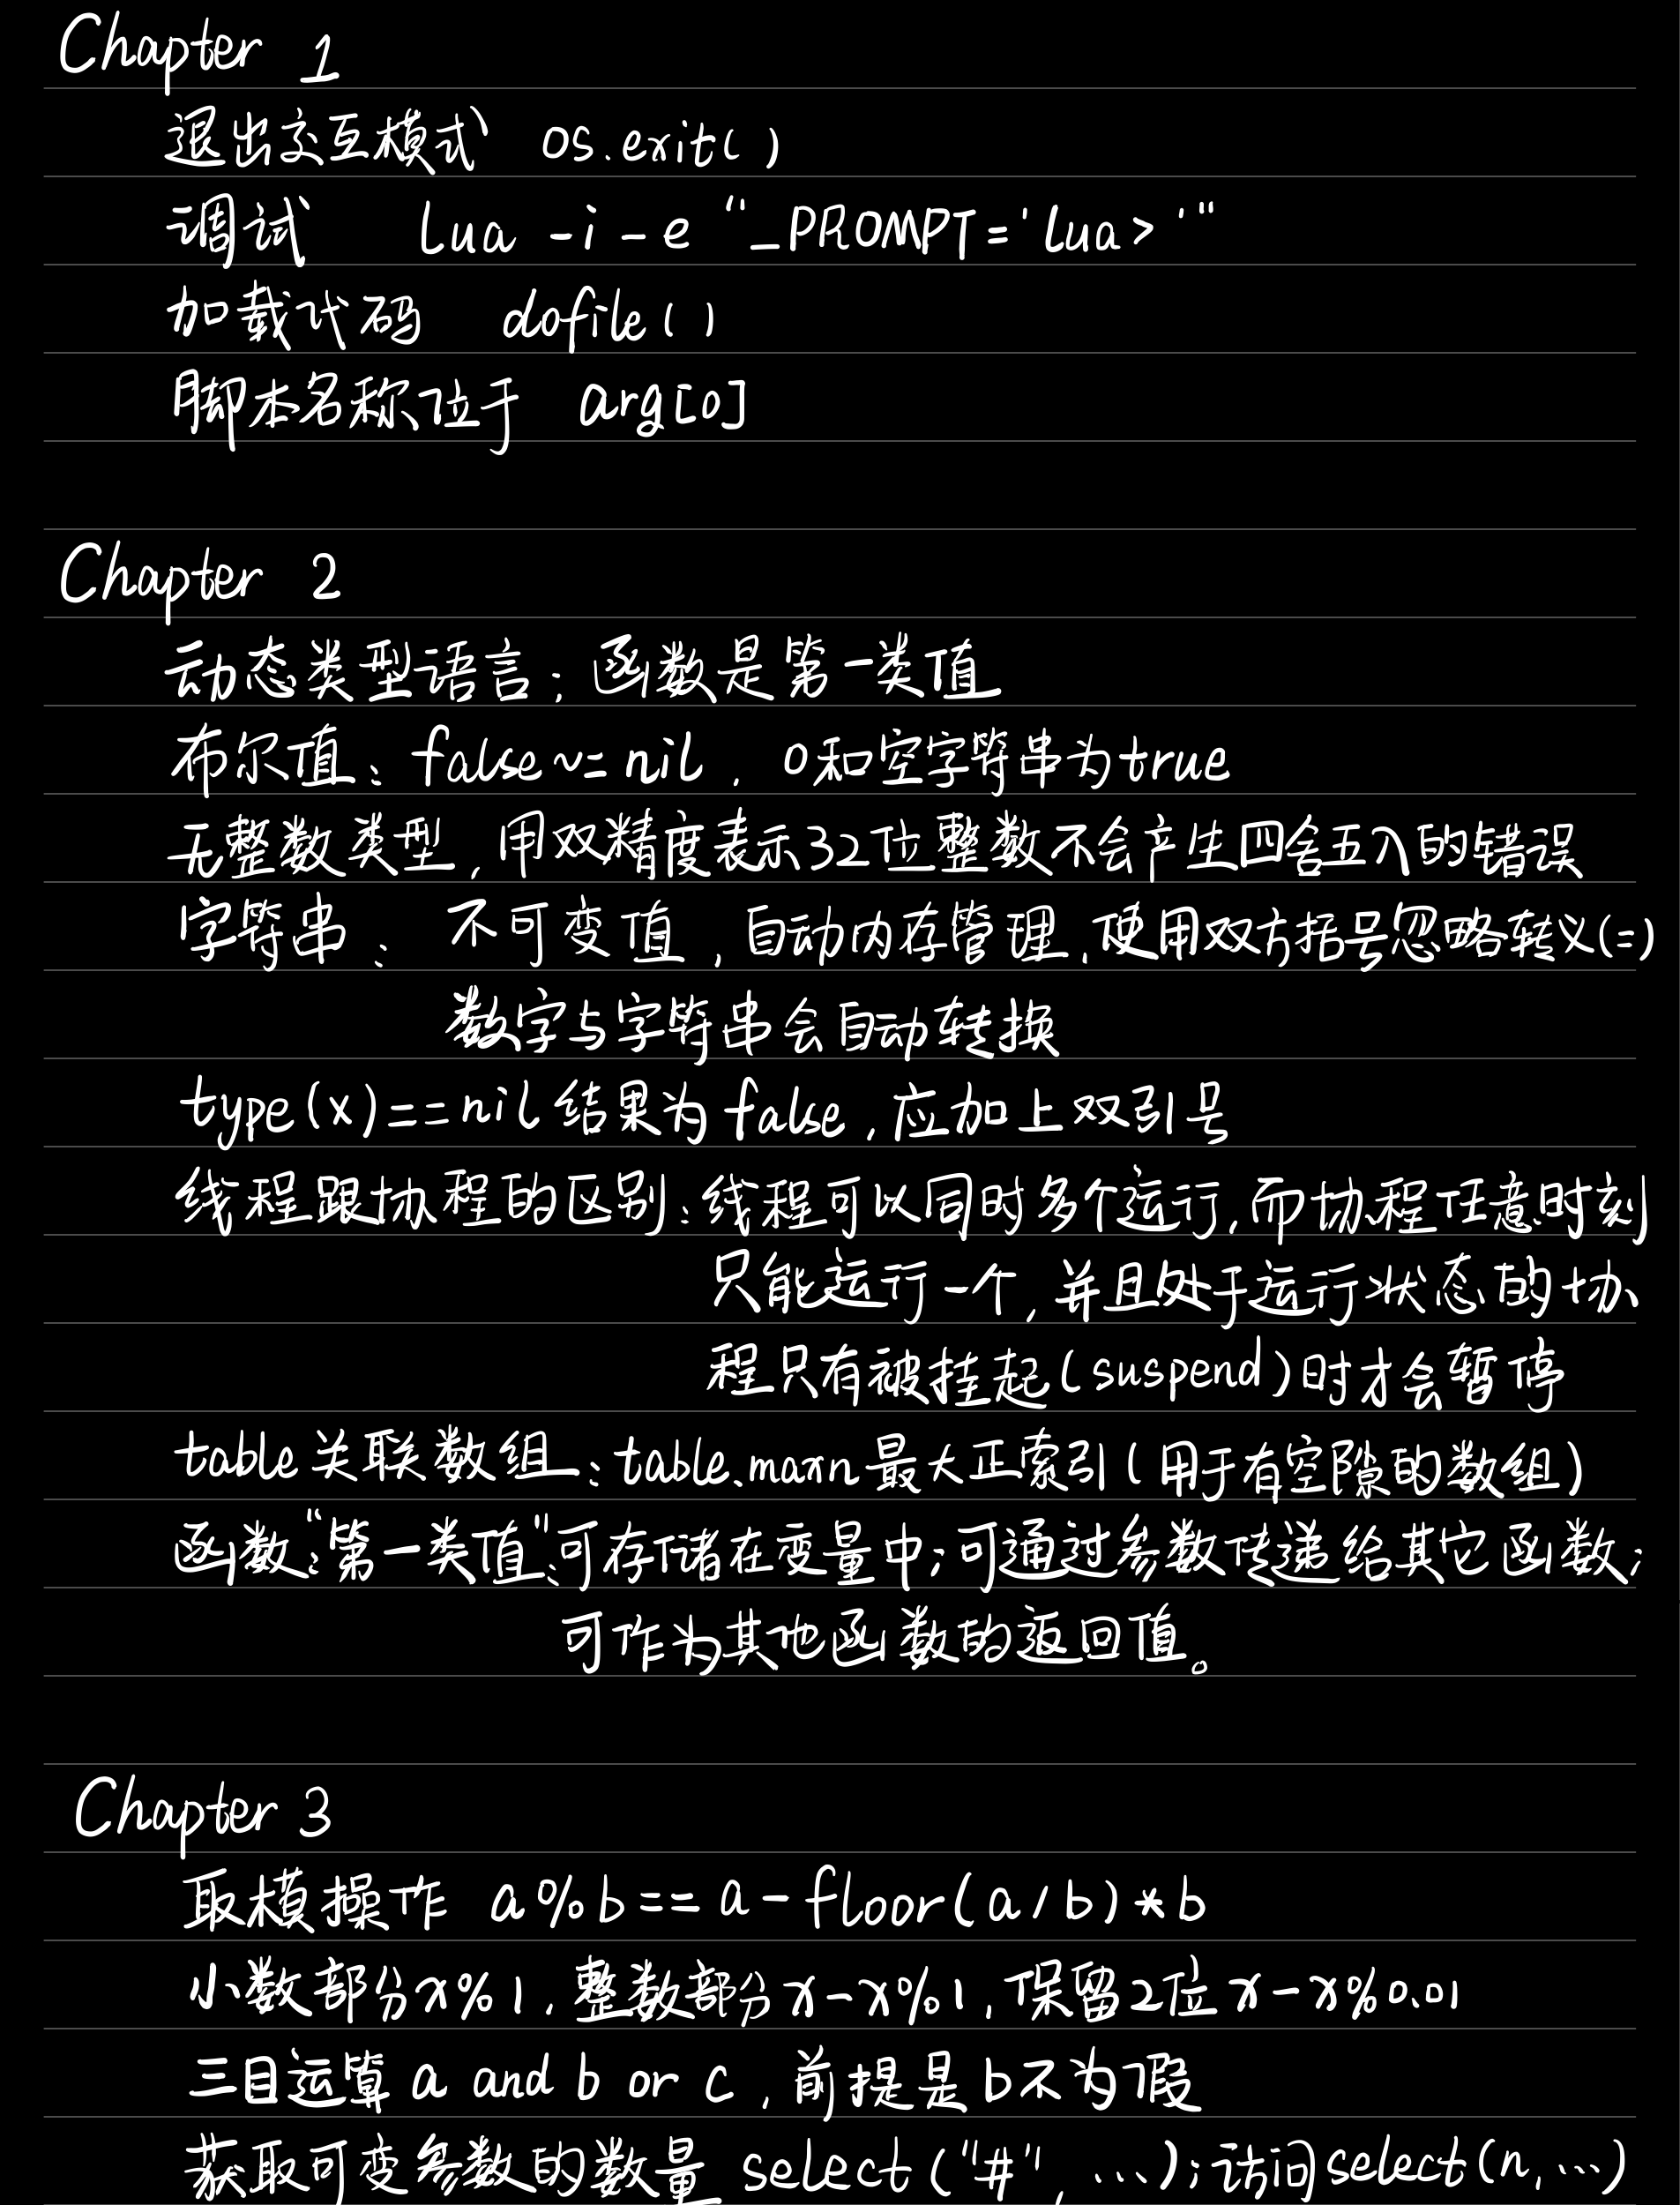 Chapter 1
退出交互模式 os.exit()
调试 Lua -i -e "_PROMPT='Lua> '"
加载代码 dofile()
脚本名称位于 arg[0]
Chapter 2
动态类型语言；函数是第一类值
布尔值：false ~= nil，0和空字符串为true
无整数类型，用双精度表示32位整数不会产生四舍五入的错误
字符串：不可变值，自动内存管理，使用双方括号忽略转义(=)
数字与字符串会自动转换
type(x)==nil结果为false，应加上双引号
线程跟协程的区别：线程可以同时多个运行，而协程任意时刻
只能运行一个，并且处于运行状态的协
程只有被挂起(suspend)时才会暂停
table关联数组：table.maxn最大正索引(用于有空隙的数组)
函数："第一类值"：可存储在变量中；可通过参数传递给其它函数；
可作为其他函数的返回值。
Chapter 3
取模操作 a%b==a-floor(a/b)*b
小数部分x%1，整数部分x-x%1，保留2位x-x%0.01
三目运算a and b or c，前提是b不为假
获取可变参数的数量 select("#", ...)；访问select(n, ...)